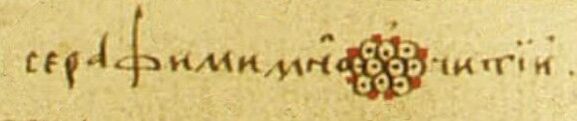 серафими многоꙮчитїи.